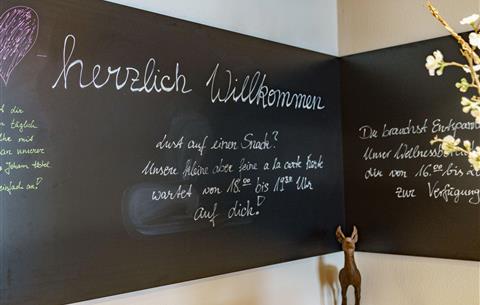 herzlich Willkommen
Lust auf einen Snack?
Unsere kleine aber feine a la carte Karte
wartet von 18.00 bis 19.30 Uhr
auf dich!
dir
täglich
mit
an unserer
Johann Hotel
einfach an!
Du brauchst Entspannu
Unser Wellnessbere
dir von 16.00 bis 2
zur Verfügung